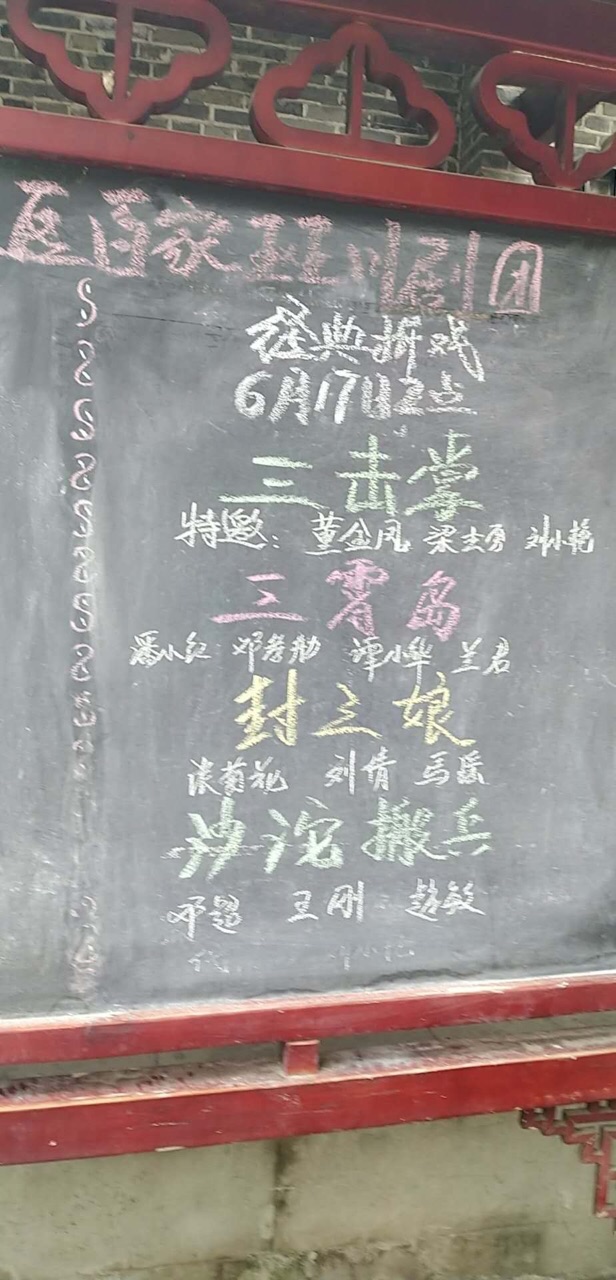 百家班川剧团
经典折戏
6月17日2点
三击掌
特邀: 董金凤 梁志勇 刘小艳
三霄岛
潘小红 邓孝勋 谭小华 兰君
封三娘
淡菊花 刘倩 马瑶
沙沱搬兵
邓超 王刚 赵敏